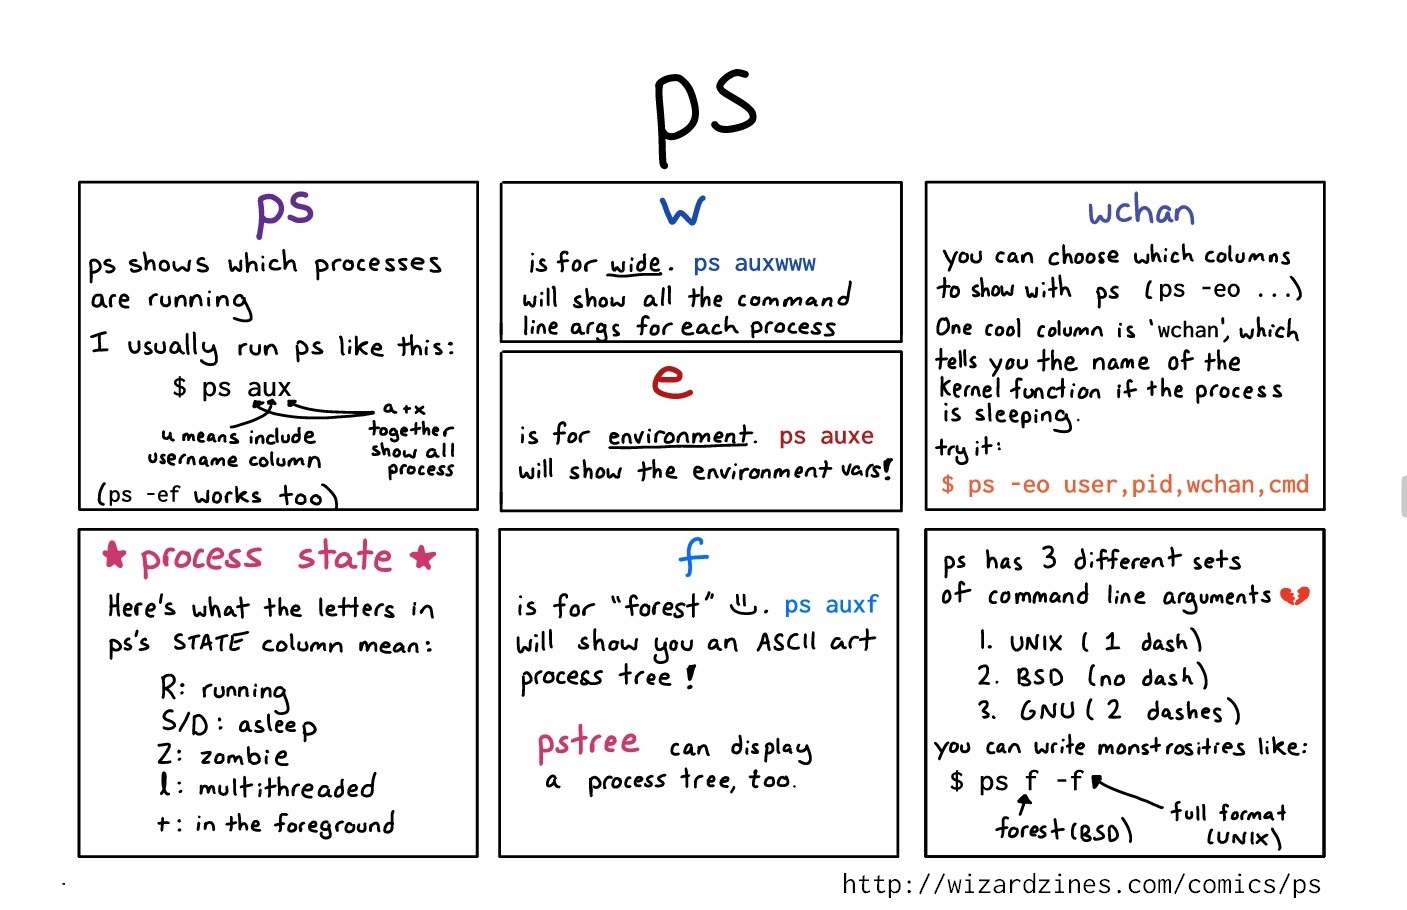 ps
ps
ps shows which processes
are running
I usually run ps like this:
$ ps aux
u means include
username column
a+x
together
show all
process
(ps -ef works too)
w
is for wide. ps auxwww
will show all the command
line args for each process
e
is for environment. ps auxe
will show the environment vars!
wchan
you can choose which columns
to show with ps (ps -eo ...)
One cool column is 'wchan', which
tells you the name of the
kernel function if the process
is sleeping.
try it:
$ ps -eo user,pid,wchan,cmd
★ process state ★
Here's what the letters in
ps's STATE column mean:
R: running
S/D: asleep
Z: zombie
l: multithreaded
+: in the foreground
f
is for "forest" . ps auxf
will show you an ASCII art
process tree!
pstree can display
a process tree, too.
ps has 3 different sets
of command line arguments 💔
1. UNIX (1 dash)
2. BSD (no dash)
3. GNU (2 dashes)
you can write monstrosities like:
$ ps f -f
forest (BSD)
full format
(UNIX)
http://wizardzines.com/comics/ps